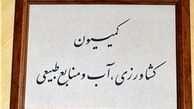 کمیسیون
کشاورزی،آب و منابع طبیعی